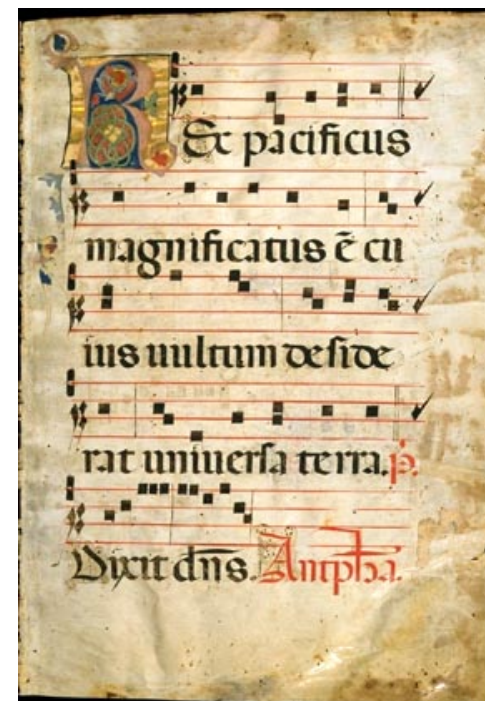 Rex pacificus
magnificatus ē cu
ius uultum deside
rat uniuersa terra. p̄.
Dixit dn̄s. Antipħa.